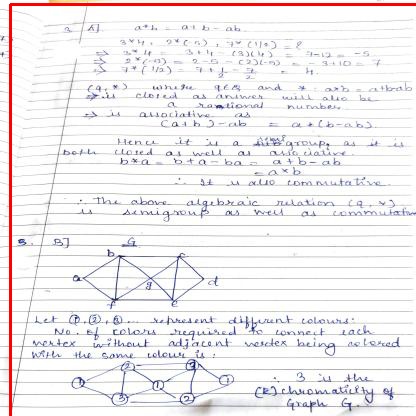 3 A] a*b = a+b-ab
3*4, 2*(-5), 7*(1/2) = ?
⇒ 3*4 = 3+4-(3)(4) = 7-12 = -5
⇒ 2*(-5) = 2-5-(2)(-5) = -3+10 = 7
⇒ 7*(1/2) = 7+1/2-7/2 = 4.
(Q, *) where q∈Q and *: a*b = a+b-ab
⇒ is closed as answer will also be
a rational number
⇒ is associative as
(a+b)-ab = a+(b-ab).
Hence it is a semigroup as it is
both closed as well as associative.
b*a = b+a-ba = a+b-ab
= a*b
∴ It is also commutative.
∴ The above algebraic relation (Q, *)
is semigroup as well as commutative
3. B] G
b c
a g d
f e
Let ①, ②, ③ ... represent different colours:
No. of colors required to connect each
vertex without adjacent vertex being colored
with the same colour is:
② ③
① ① ①
③ ②
∴ 3 is the
(K) chromaticity of
Graph G.